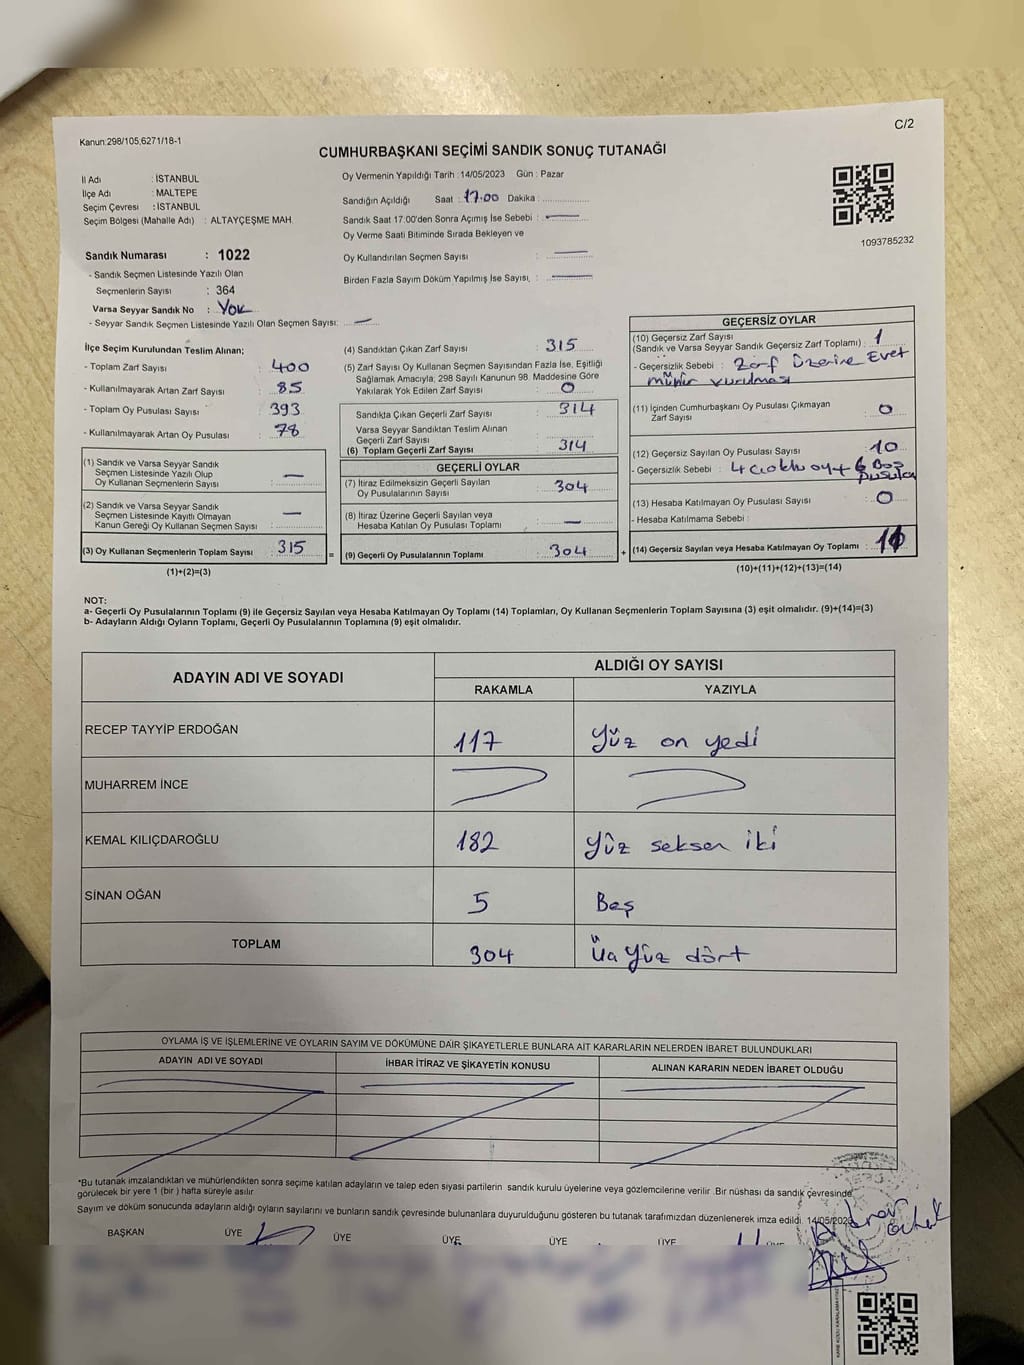 C/2
Kanun:298/105,6271/18-1
CUMHURBAŞKANI SEÇİMİ SANDIK SONUÇ TUTANAĞI
İl Adı : İSTANBUL
İlçe Adı : MALTEPE
Seçim Çevresi : İSTANBUL
Seçim Bölgesi (Mahalle Adı) : ALTAYÇEŞME MAH.
Oy Vermenin Yapıldığı Tarih :14/05/2023 Gün : Pazar
Sandığın Açıldığı Saat : 17.00 Dakika :
Sandık Saat 17:00'den Sonra Açımış İse Sebebi : —
Oy Verme Saati Bitiminde Sırada Bekleyen ve
Oy Kullandırılan Seçmen Sayısı : —
Birden Fazla Sayım Döküm Yapılmış İse Sayısı, : —
1093785232
Sandık Numarası : 1022
- Sandık Seçmen Listesinde Yazılı Olan
Seçmenlerin Sayısı : 364
Varsa Seyyar Sandık No : Yok
- Seyyar Sandık Seçmen Listesinde Yazılı Olan Seçmen Sayısı: —
İlçe Seçim Kurulundan Teslim Alınan;
- Toplam Zarf Sayısı : 400
- Kullanılmayarak Artan Zarf Sayısı : 85
- Toplam Oy Pusulası Sayısı : 393
- Kullanılmayarak Artan Oy Pusulası : 78
(1) Sandık ve Varsa Seyyar Sandık
Seçmen Listesinde Yazılı Olup
Oy Kullanan Seçmenlerin Sayısı : —
(2) Sandık ve Varsa Seyyar Sandık
Seçmen Listesinde Kayıtlı Olmayan
Kanun Gereği Oy Kullanan Seçmen Sayısı : —
(3) Oy Kullanan Seçmenlerin Toplam Sayısı : 315
(1)+(2)=(3)
=
(4) Sandıktan Çıkan Zarf Sayısı : 315
(5) Zarf Sayısı Oy Kullanan Seçmen Sayısından Fazla İse, Eşitliği
Sağlamak Amacıyla, 298 Sayılı Kanunun 98. Maddesine Göre
Yakılarak Yok Edilen Zarf Sayısı : 0
Sandıkta Çıkan Geçerli Zarf Sayısı : 314
Varsa Seyyar Sandıktan Teslim Alınan
Geçerli Zarf Sayısı :
(6) Toplam Geçerli Zarf Sayısı : 314
GEÇERLİ OYLAR
(7) İtiraz Edilmeksizin Geçerli Sayılan
Oy Pusulalarının Sayısı : 304
(8) İtiraz Üzerine Geçerli Sayılan veya
Hesaba Katılan Oy Pusulası Toplamı : —
(9) Geçerli Oy Pusulalarının Toplamı : 304
+
GEÇERSİZ OYLAR
(10) Geçersiz Zarf Sayısı
(Sandık ve Varsa Seyyar Sandık Geçersiz Zarf Toplamı) : 1
- Geçersizlik Sebebi : Zarf üzerine Evet
mühür vurulması
(11) İçinden Cumhurbaşkanı Oy Pusulası Çıkmayan
Zarf Sayısı : 0
(12) Geçersiz Sayılan Oy Pusulası Sayısı : 10
- Geçersizlik Sebebi : 4 oy + 6 Boş
pusula
(13) Hesaba Katılmayan Oy Pusulası Sayısı : 0
- Hesaba Katılmama Sebebi :
(14) Geçersiz Sayılan veya Hesaba Katılmayan Oy Toplamı : 11
(10)+(11)+(12)+(13)=(14)
NOT:
a- Geçerli Oy Pusulalarının Toplamı (9) ile Geçersiz Sayılan veya Hesaba Katılmayan Oy Toplamı (14) Toplamları, Oy Kullanan Seçmenlerin Toplam Sayısına (3) eşit olmalıdır. (9)+(14)=(3)
b- Adayların Aldığı Oyların Toplamı, Geçerli Oy Pusulalarının Toplamına (9) eşit olmalıdır.
ADAYIN ADI VE SOYADI ALDIĞI OY SAYISI
RAKAMLA YAZIYLA
RECEP TAYYİP ERDOĞAN 117 Yüz on yedi
MUHARREM İNCE
KEMAL KILIÇDAROĞLU 182 Yüz seksen iki
SİNAN OĞAN 5 Beş
TOPLAM 304 Üç Yüz dört
OYLAMA İŞ VE İŞLEMLERİNE VE OYLARIN SAYIM VE DÖKÜMÜNE DAİR ŞİKAYETLERLE BUNLARA AİT KARARLARIN NELERDEN İBARET BULUNDUKLARI
ADAYIN ADI VE SOYADI İHBAR İTİRAZ VE ŞİKAYETİN KONUSU ALINAN KARARIN NEDEN İBARET OLDUĞU
*Bu tutanak imzalandıktan ve mühürlendikten sonra seçime katılan adayların ve talep eden siyasi partilerin sandık kurulu üyelerine veya gözlemcilerine verilir .Bir nüshası da sandık çevresinde
görülecek bir yere 1 (bir ) hafta süreyle asılır.
Sayım ve döküm sonucunda adayların aldığı oyların sayılarını ve bunların sandık çevresinde bulunanlara duyurulduğunu gösteren bu tutanak tarafımızdan düzenlenerek imza edildi. 14/05/2023
BAŞKAN ÜYE ÜYE ÜYE ÜYE ÜYE